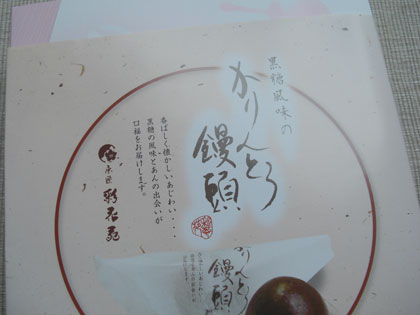 黒糖風味の
かりんとう
饅頭
香ばしく懐かしいあじわい・・・
黒糖の風味とあんの出会いが
口福をお届けします。
菓匠
彩花苑
かりんとう
饅頭